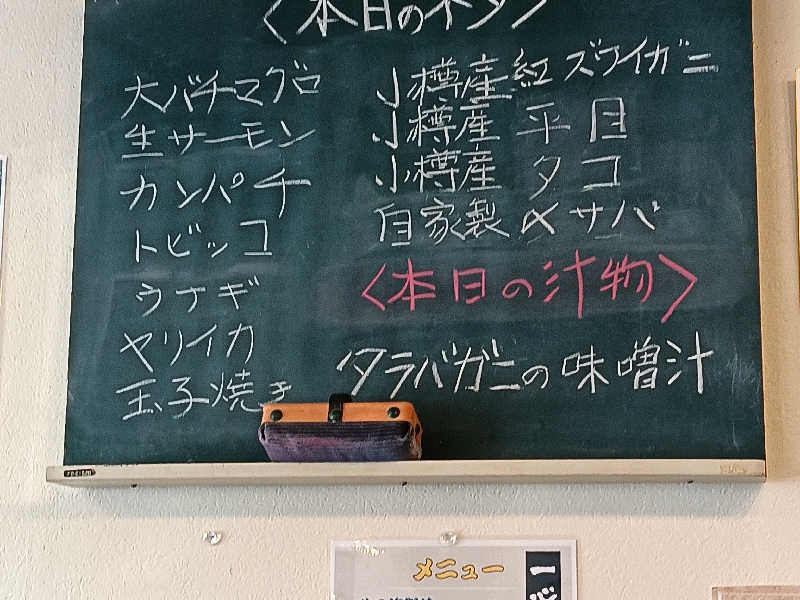 〈本日のネタ〉
大バチマグロ
生サーモン
カンパチ
トビッコ
ウナギ
ヤリイカ
玉子焼き
小樽産紅ズワイガニ
小樽産平目
小樽産タコ
自家製〆サバ
〈本日の汁物〉
タラバガニの味噌汁
メニュー